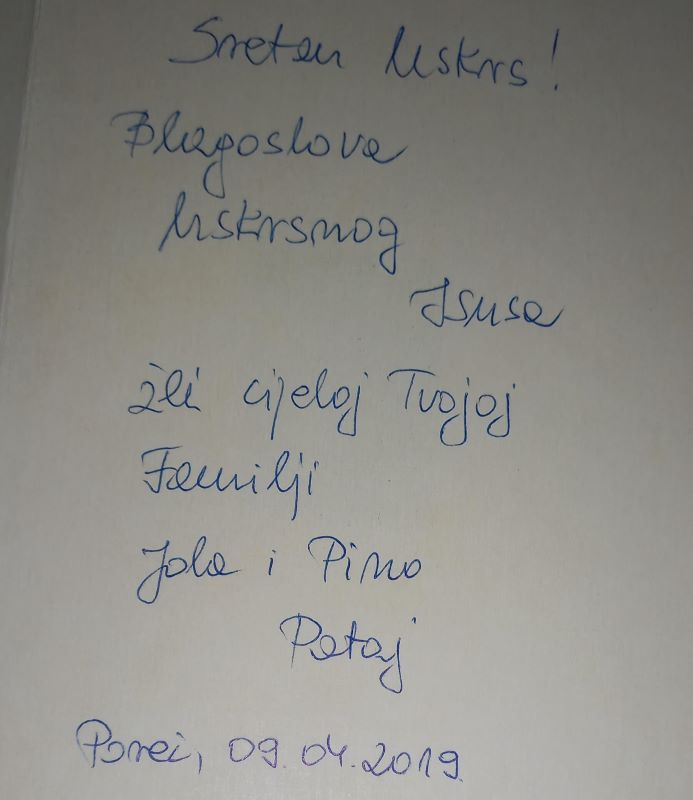 Sretan Uskrs!
Blagoslova
Uskrsnog
Isusa
žli cijeloj Tvojoj
Familji
Jola i Pino
Pataj
Poreč, 09.04.2019.